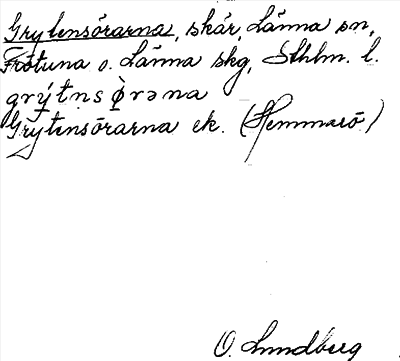 Grytensörarna, skär, Länna sn,
Frötuna o. Länna skg, Sthlm. l.
grýtṇsø̀rəna
Grytensörarna ek. (Hemmarö)
O. Lundberg